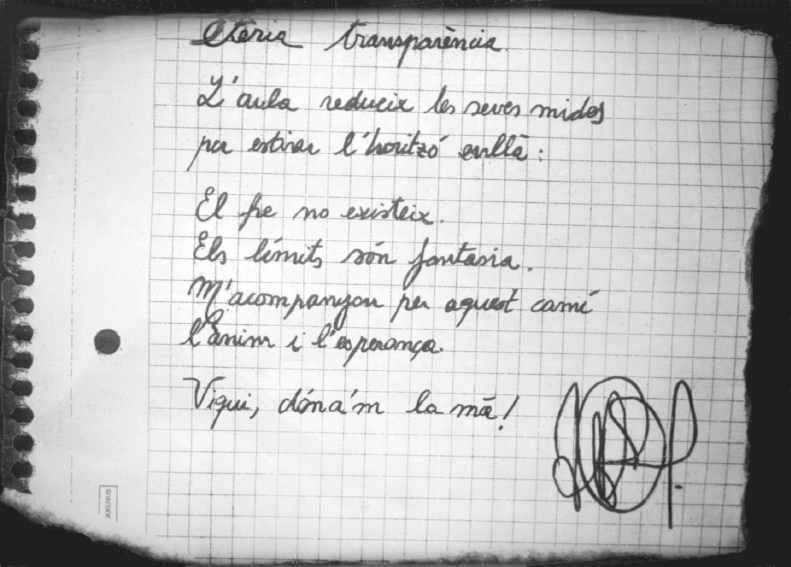 Etèria transparència.
L'aula redueix les seves mides
per estirar l'horitzó enllà:
El fre no existeix.
Els límits són fantasia.
M'acompanyen per aquest camí
l'ànim i l'esperança.
Vigui, dóna'm la mà!